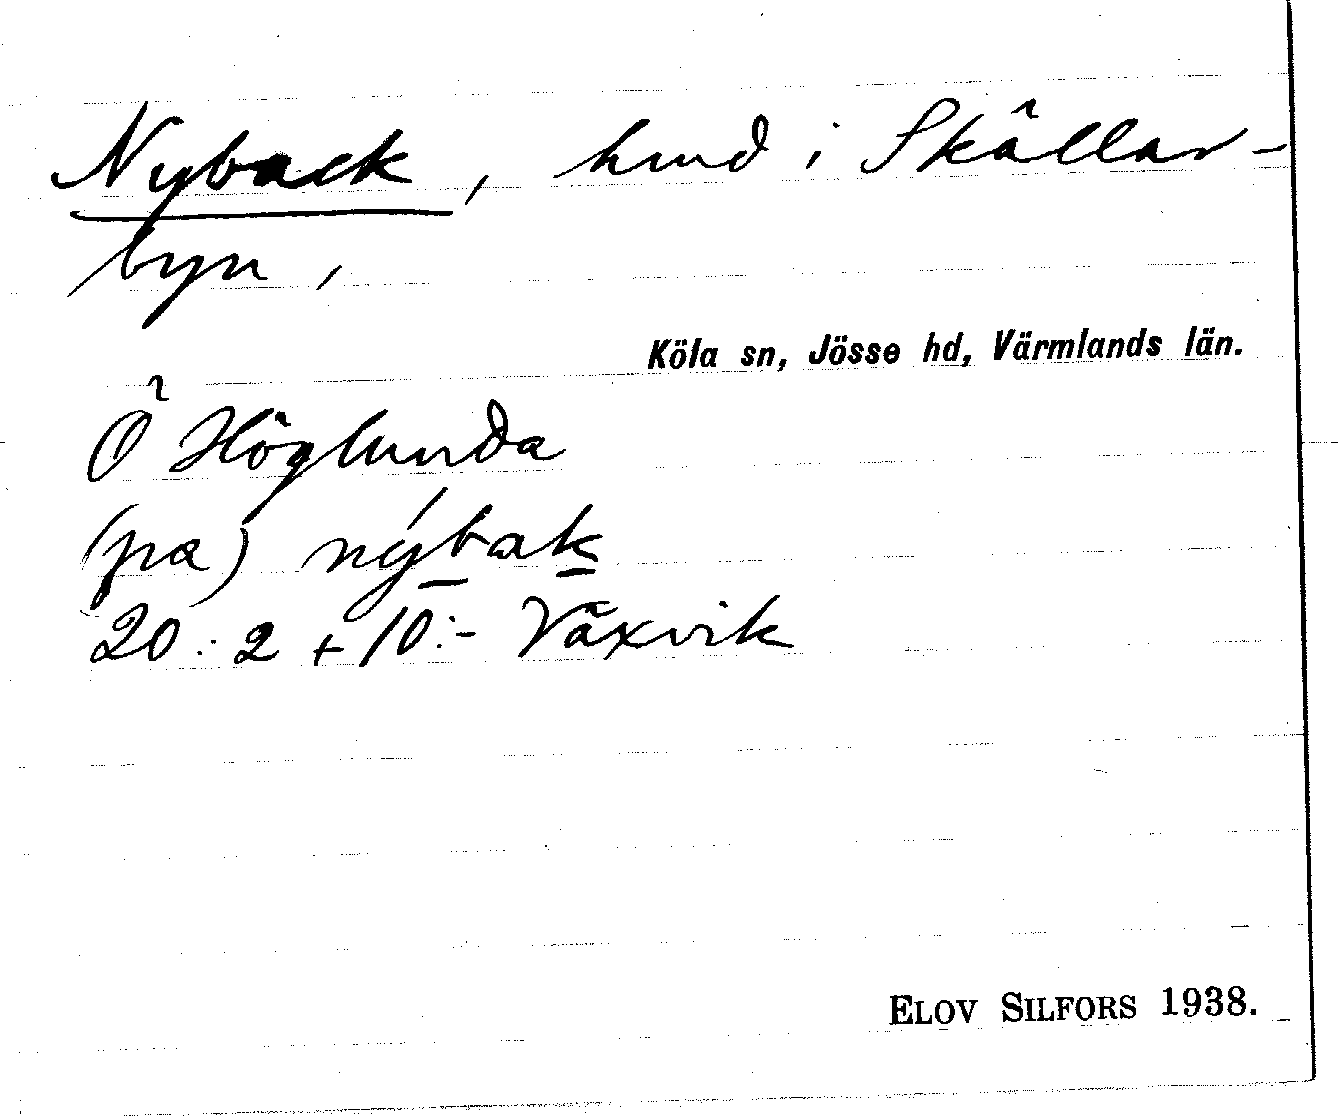 Nyback, hmd i Skällar-
byn,
Köla sn, Jösse hd, Värmlands län.
Ö Höglunda
(pa) nýbak
20:2 + 10:- Växvik
ELOV SILFORS 1938.